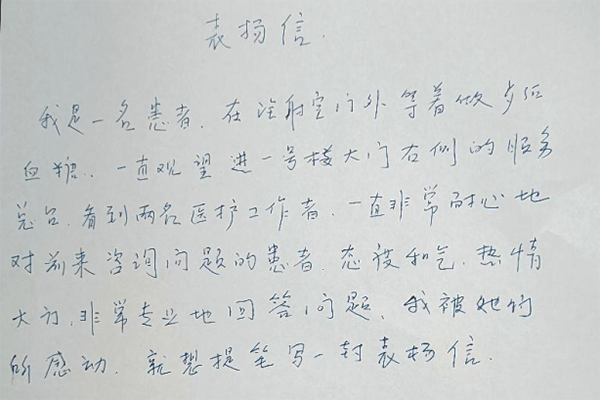 表扬信.
我是一名患者.在注射室门外等着做
血糖..一直观望进一号楼大门右侧的服务
总台.看到两名医护工作者.一直非常耐心地
对前来咨询问题的患者.态度和气.热情
大方.非常专业地回答问题.我被她们
所感动.就想提笔写一封表扬信.